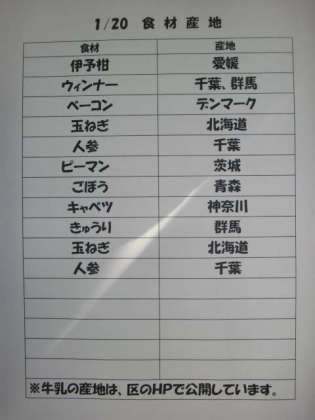 1/20 食材産地
食材 産地
伊予柑 愛媛
ウィンナー 千葉、群馬
ベーコン デンマーク
玉ねぎ 北海道
人参 千葉
ピーマン 茨城
ごぼう 青森
キャベツ 神奈川
きゅうり 群馬
玉ねぎ 北海道
人参 千葉
※牛乳の産地は、区のHPで公開しています。